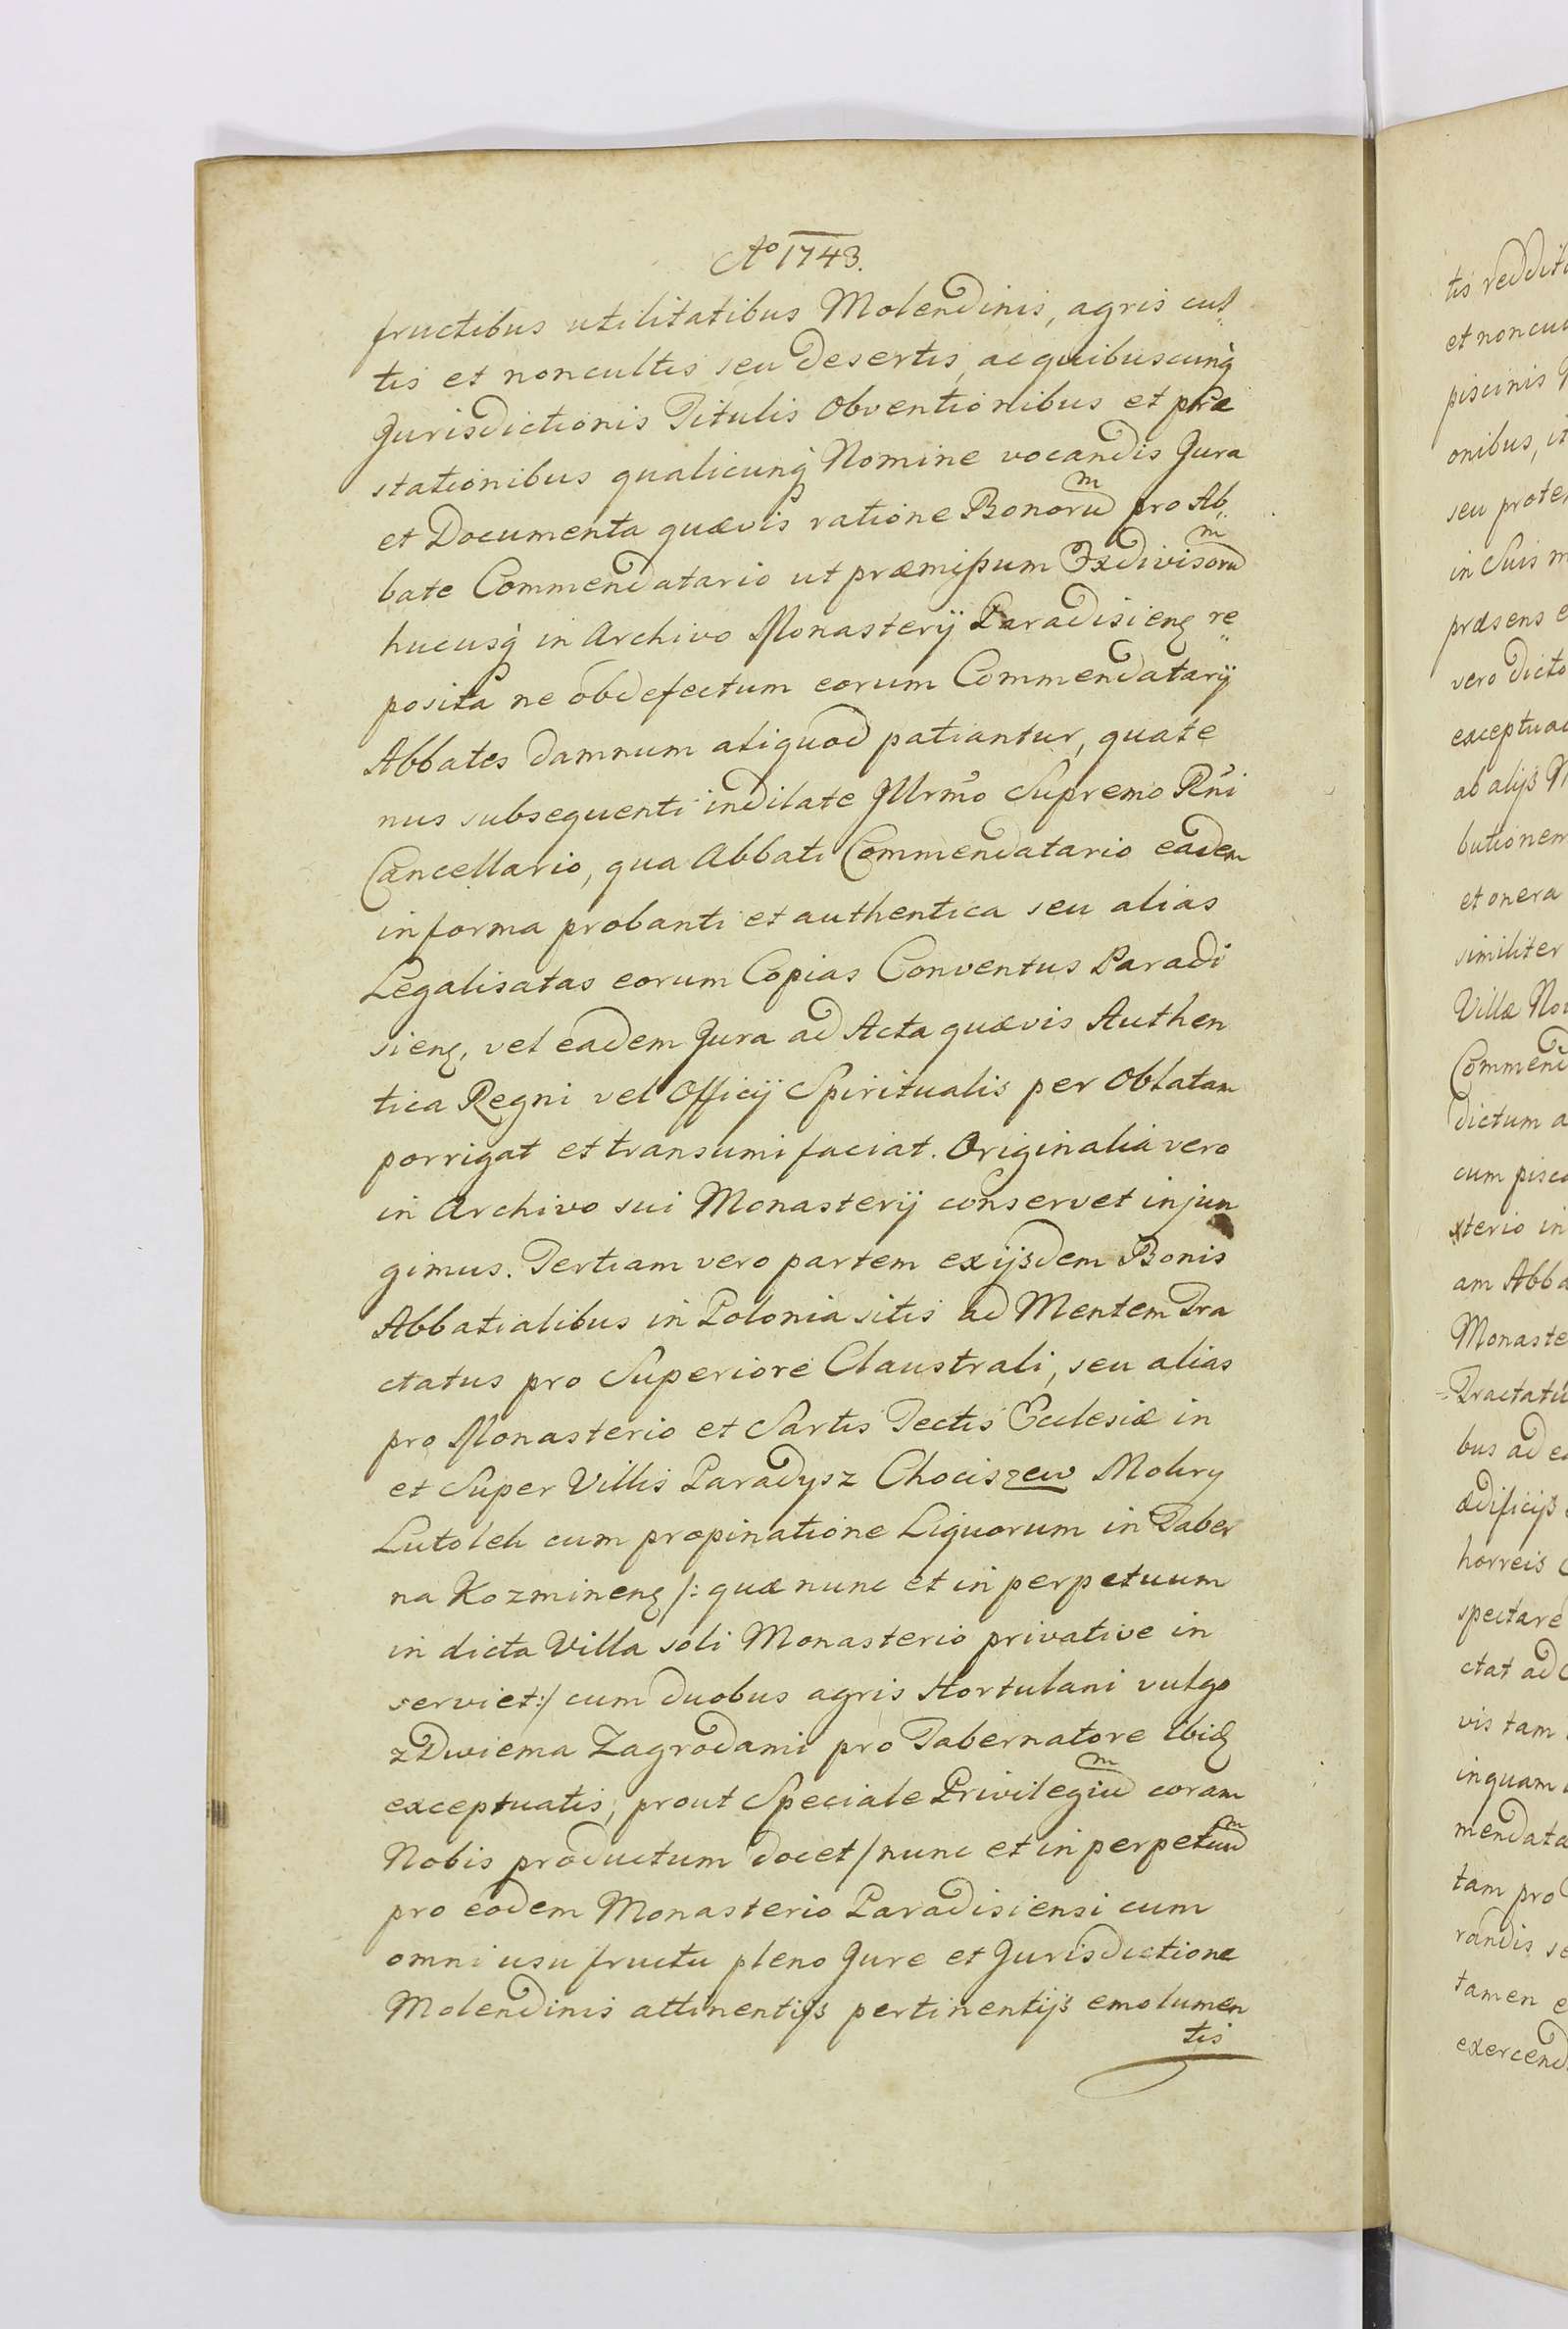 Ao 1743.
fructibus utilitatibus Molendinis, agris cul
tis et noncultis seu desertis, ac quibuscunq̀
Jurisdictionis Titulis Obventionibus et præ
stationibus qualicunq̀ Nomine vocandis Jura
et Documenta quævis ratione Bonorum pro Ab
bate Commendatario ut præmissum Exdivisorum
hucusq̀ in Archivo Monasterij Paradisieng re
posita ne obdefectum eorum Commendatarij
Abbates damnum aliquod patiantur, quate
nus subsequenti indilate Jllrmo Supremo Rni
Cancellario, qua Abbati Commendatario eadem
in forma probanti et authentica seu alias
Legalisatas eorum Copias Conventus Paradi
sieng, vel eadem Jura ad Acta quævis Authen
tica Regni vel Officij Spiritualis per Oblatam
porrigat et transumi faciat. Originalia vero
in Archivo sui Monasterij conservet injun
gimus. Tertiam vero partem exijsdem Bonis
Abbatialibus in Polonia sitis ad Mentem Tra
ctatus pro Superiore Claustrali, seu alias
pro Monasterio et Sartis Tectis Ecclesiæ in
et Super Villis Paradysz Chociszew Mokry
Lutoleh cum propinatione Liquorum in Taber
na Kozmineng /: quæ nunc et in perpetuum
in dicta Villa soli Monasterio privative in
serviet :/ cum duobus agris Hortulani vulgo
z Dwiema Zagrodami pro Tabernatore Ibid
exceptuatis, prout Speciale Privilegium coram
Nobis productum docet / nunc et in perpetuum
pro eodem Monasterio Paradisiensi cum
omni usu fructu pleno Jure et Jurisdictione
Molendinis attinentijs pertinentijs emolumen
tis
tis reddit
et noncu
piscinis
onibus, ut
seu prote
in Suis m
præsens e
vero dicto
exceptua
ab alijs
butionem
et onera
similiter
Villæ No
Commend
dictum a
cum pisc
sterio in
am Abba
Monaste
Tractatu
bus ad e
ædificijs
horreis
spectare
ctat ad
vis tam
inquam
mendata
tam pro
randis se
tamen e
exercend